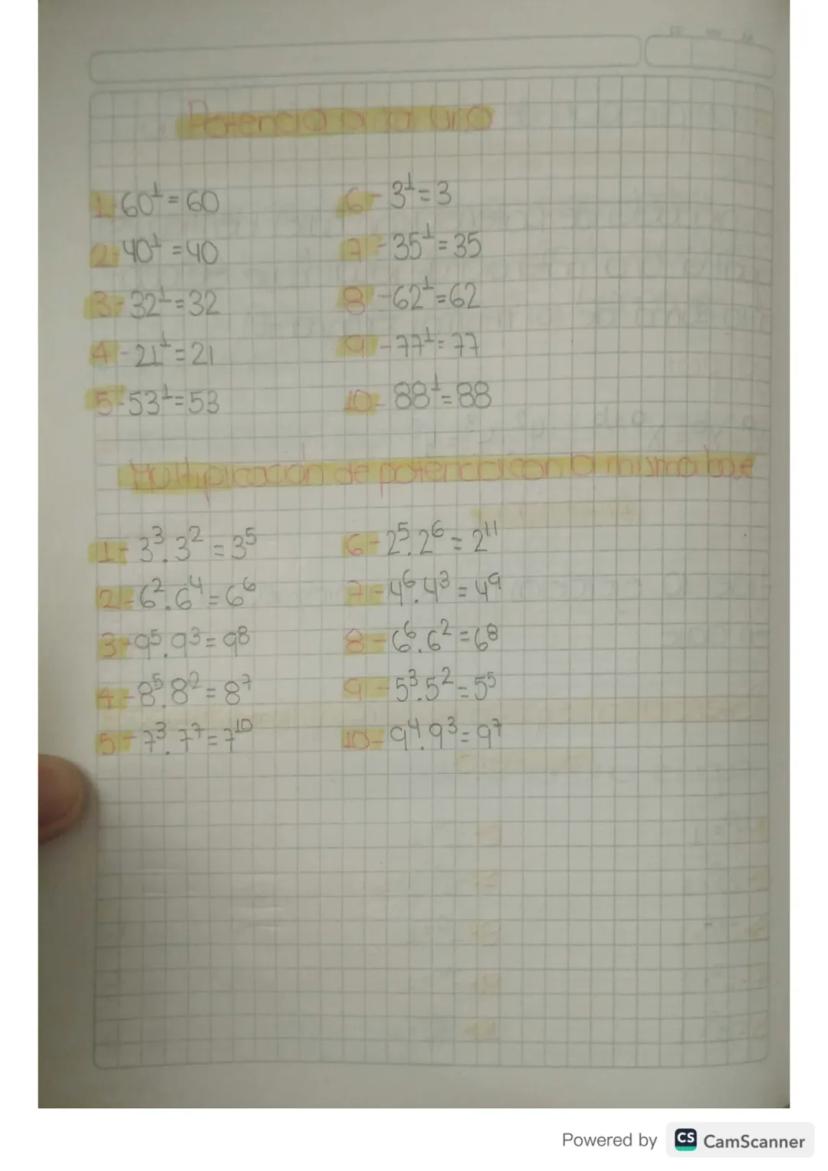 Potencia a la uno
1- 60¹ = 60
2- 40¹ = 40
3- 32¹ = 32
4 - 21¹ = 21
5- 53¹ = 53
6- 3¹ = 3
7 - 35¹ = 35
8 - 62¹ = 62
9 - 77¹ = 77
10- 88¹ = 88
Multiplicación de potencia con la misma base
1- 3³ . 3² = 3⁵
2- 6² . 6⁴ = 6⁶
3- 9⁵ . 9³ = 9⁸
4- 8⁵ . 8² = 8⁷
5- 7³ . 7⁷ = 7¹⁰
6- 2⁵ . 2⁶ = 2¹¹
7- 4⁶ . 4³ = 4⁹
8- 6⁶ . 6² = 6⁸
9 - 5³ . 5² = 5⁵
10- 9⁴ . 9³ = 9⁷
Powered by CS CamScanner